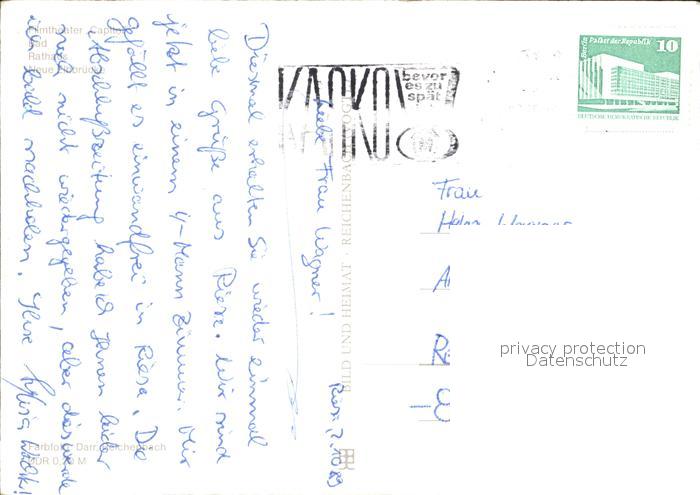 Filmtheater "Capitol"
Bad
Rathaus
Neue Elbbrücke
Riesa, 7.10.89
Liebe Frau Wagner!
Diesmal erhalten Sie wieder einmal
liebe Grüße aus Riesa. Wir sind
jetzt in einem 4-Mann Zimmer. Mir
gefällt es einwandfrei in Riesa. Die
Abschlußzeitung habe ich Ihnen leider
noch nicht wiedergegeben, aber das werde
ich bald nachholen. Ihre
Farbfoto: Darr, Reichenbach
DDR 0,20 M
BILD UND HEIMAT · REICHENBACH
KAOKO
bevor
es zu
spät
Berlin Palast der Republik 10
DEUTSCHE DEMOKRATISCHE REPUBLIK
Frau
privacy protection
Datenschutz